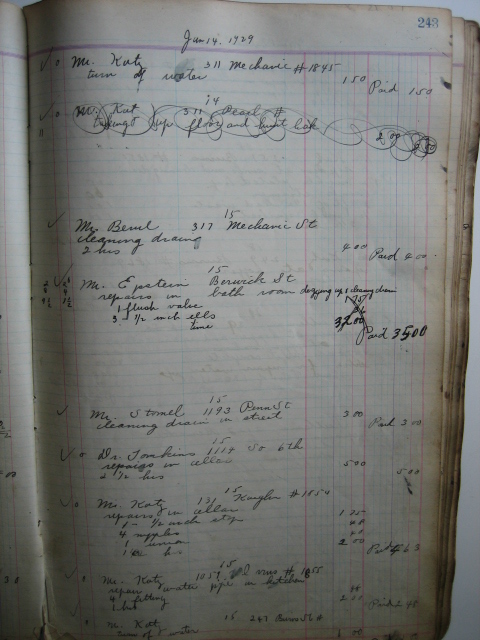 243
Jan 14, 1929
Mr. Katz 311 Mechanic # 1845
turn off water 1 50 Paid 1 50
14
Mr. Kat 311 Pearl #
taking up floor and hunt leak 2 00
15
Mr. Berul 317 Mechanic St
cleaning drain
2 hrs 4 00 Paid 4 00
15
Mr. Epstein Berwick St
repairs in bath room digging up & cleaning drain
1 flush valve 75
3 1/2 inch ells
time 32 00
Paid 35 00
15
Mr. Stomel 1193 Penn St
cleaning drain in street 3 00 Paid 3 00
15
Dr. Tomkins 1114 So 6th
repairs in cellar
2 1/2 hrs 5 00 5 00
15
Mr. Katz 131 Kaighn # 1854
repairs in cellar
1 - 1/2 inch stop 1 25
4 nipples
1 union
2 00 Paid
15
Mr. Katz
repair water pipe in kitchen
4 fitting
1 hr 2 00 Paid 2 48
Mr. Katz 15 247
turn off water